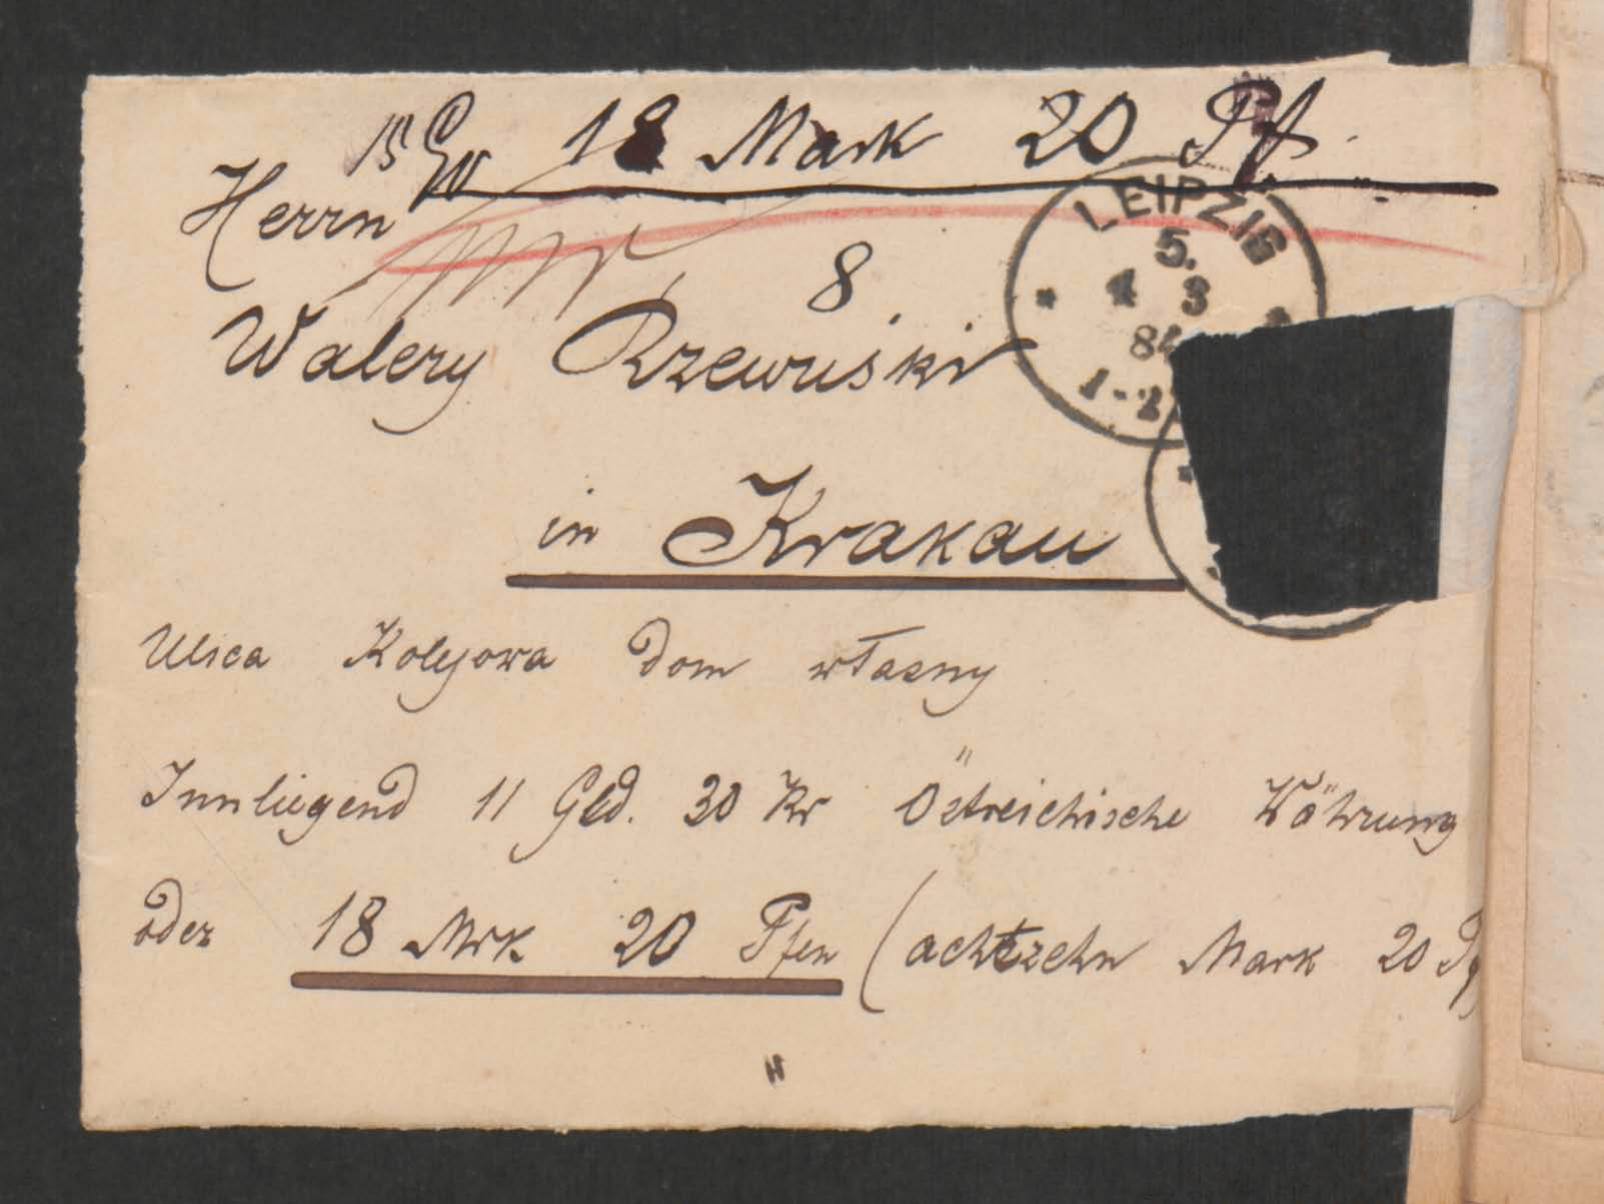 18 Mark 20 Pf.
Herrn
8.
Walery Rzewuski
in Krakau
Ulica Kolejowa Dom własny
Innliegend 11 Gld. 30 Kr Östreichische Währung
oder 18 Mrk 20 Pfen (achtzehn Mark 20 Pf
LEIPZIG
5.
3
84
1-2